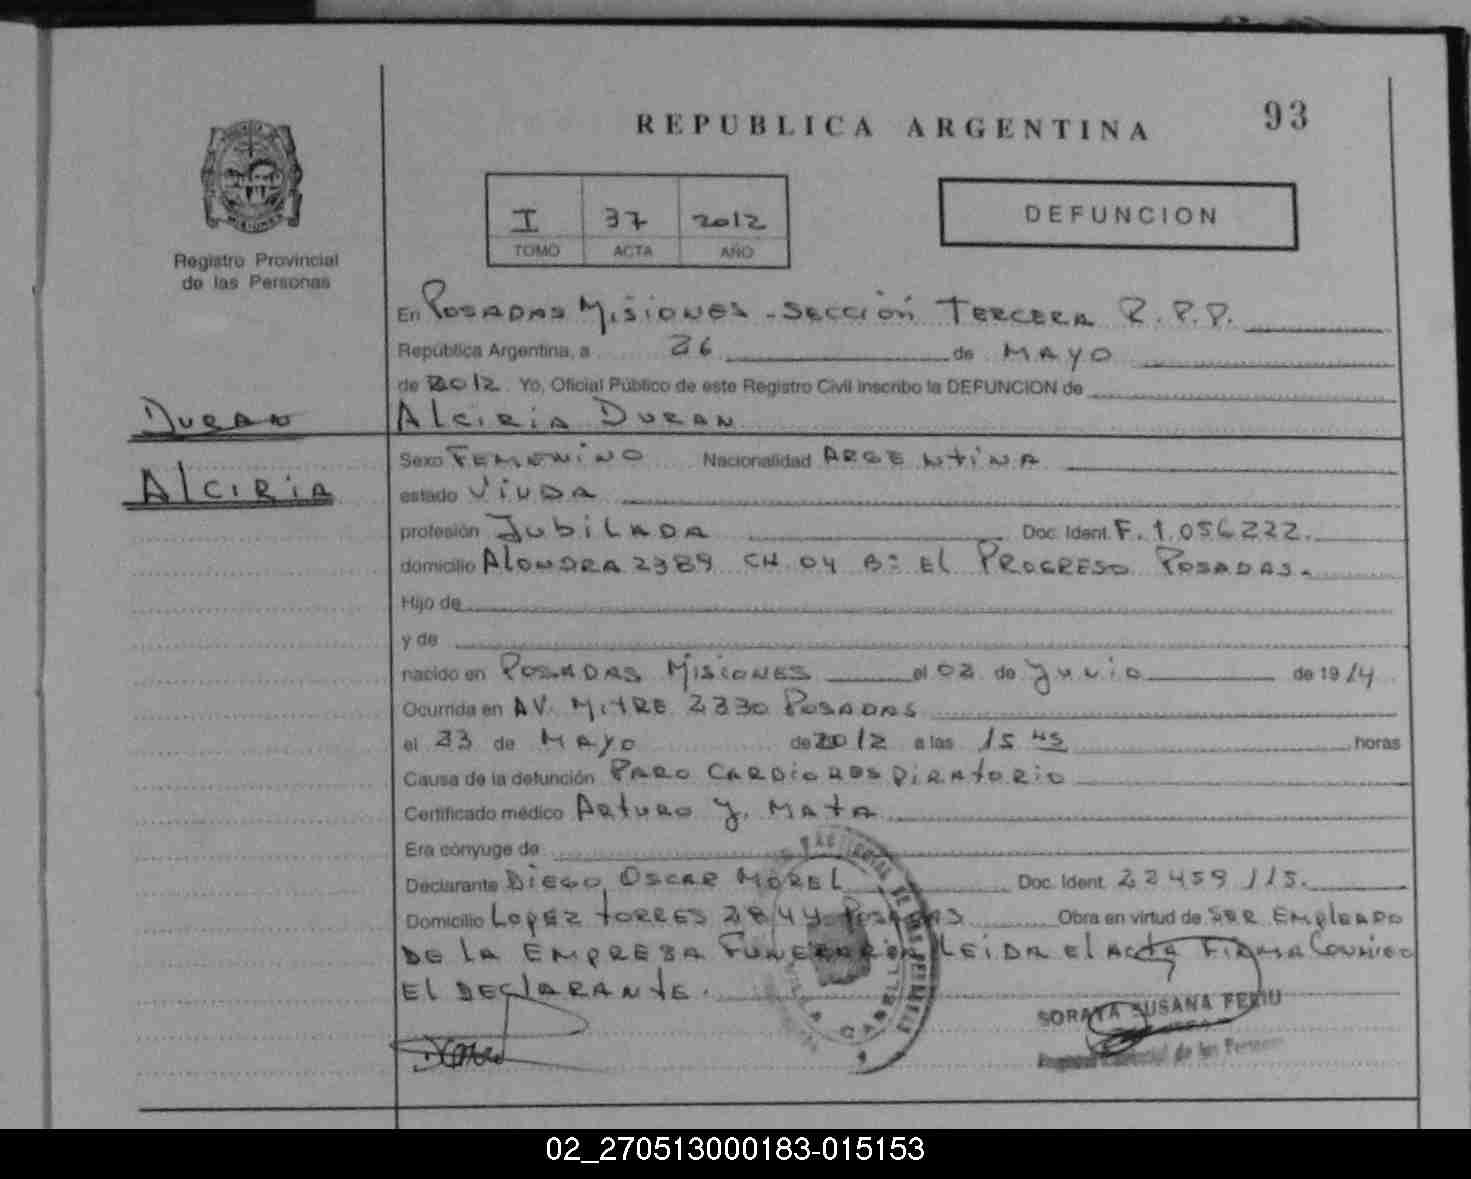 93
REPUBLICA ARGENTINA
I 37 2012
TOMO ACTA AÑO
DEFUNCION
MISIONES
Registro Provincial
de las Personas
En POSADAS MISIONES - SECCIÓN TERCERA R.P.P.
República Argentina, a 26 de MAYO
de 2012 Yo, Oficial Público de este Registro Civil inscribo la DEFUNCION de
DURAN
ALCIRIA DURAN
ALCIRIA
Sexo FEMENINO Nacionalidad ARGENTINA
estado VIUDA
profesión JUBILADA Doc. Ident. F. 1.056222.
domicilio ALONDRA 2389 CH 04 B: EL PROGRESO POSADAS.
Hijo de
y de
nacido en POSADAS MISIONES el 02 de JUNIO de 19 14
Ocurrida en AV. MITRE 2330 POSADAS
el 23 de MAYO de 2012 a las 15 45 horas
Causa de la defunción PARO CARDIORESPIRATORIO
Certificado médico ARTURO J. MATA
Era cónyuge de
Declarante DIEGO OSCAR MOREL Doc. Ident. 22459115.
Domicilio LOPEZ TORRES 2844 POSADAS Obra en virtud de SER EMPLEADO
DE LA EMPRESA FUNERARIA LEIDA EL ACTA FIRMA CONMIGO
EL DECLARANTE.
SORAYA SUSANA FERIU
de las Personas
02_270513000183-015153